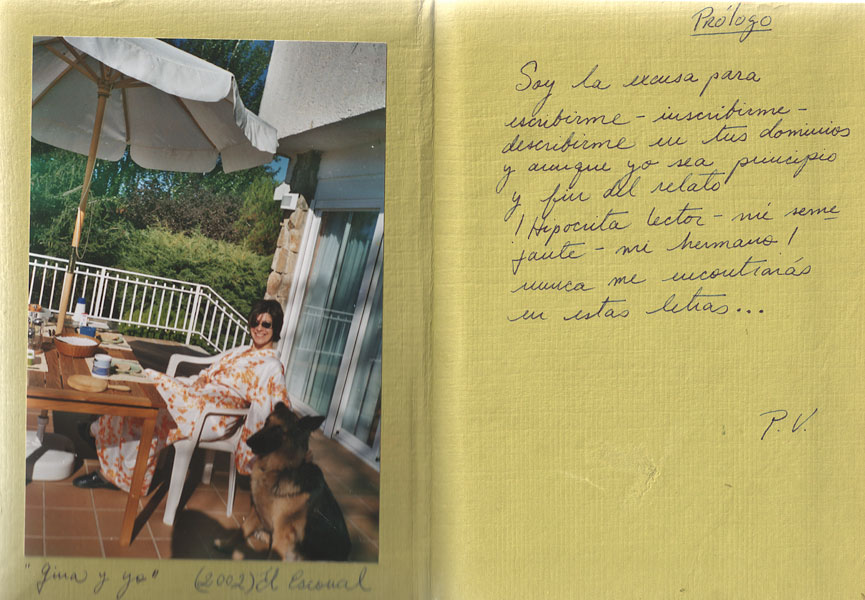 "Gina y yo" (2002) El Escorial
Prólogo
Soy la excusa para
escribirme - inscribirme -
describirme en tus dominios
y aunque yo sea principio
y fin del relato
¡Hipocrita lector - mi seme
jante - mi hermano!
nunca me encontrarás
en estas letras...
P. V.